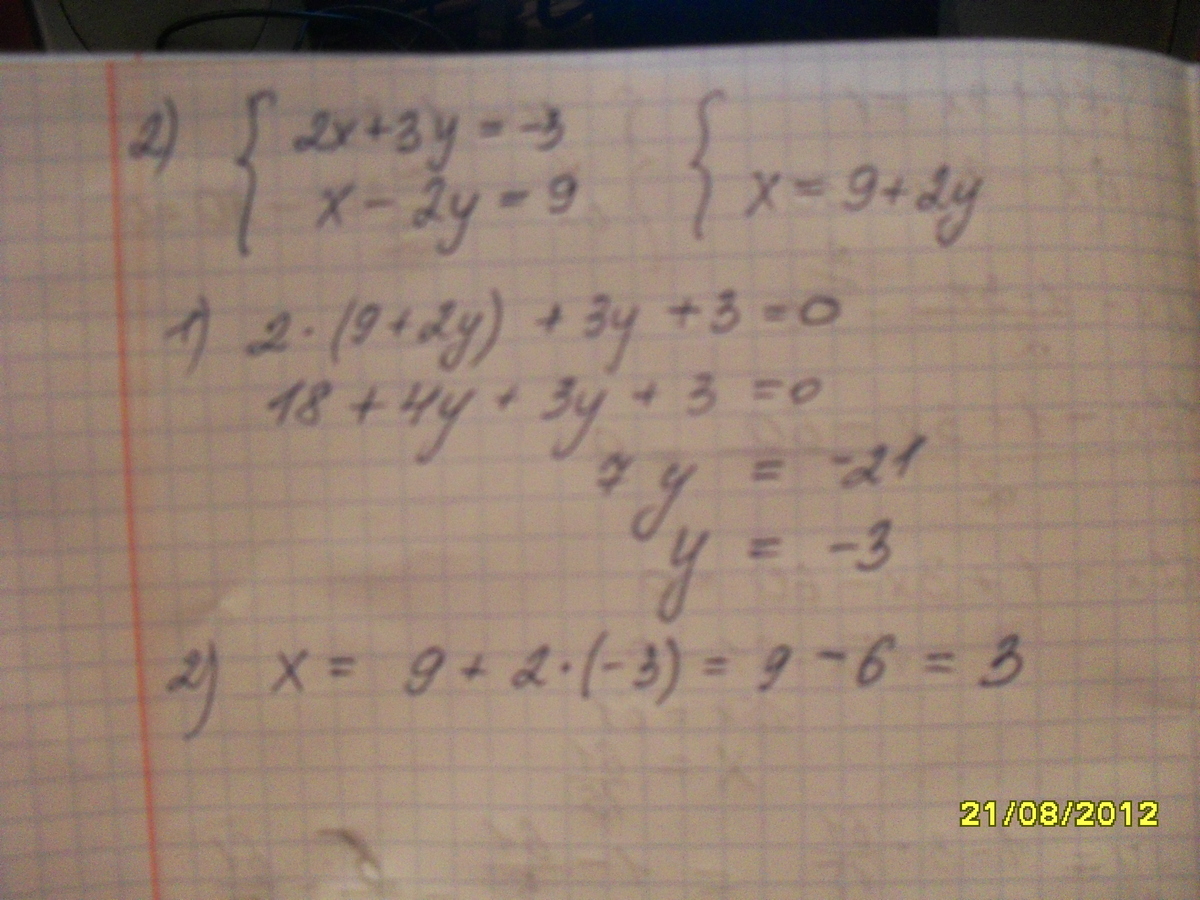 2) { 2x+3y = -3 {
x - 2y = 9 x = 9+2y
1) 2·(9+2y) + 3y + 3 = 0
18 + 4y + 3y + 3 = 0
7y = -21
y = -3
2) x = 9 + 2·(-3) = 9 - 6 = 3
21/08/2012